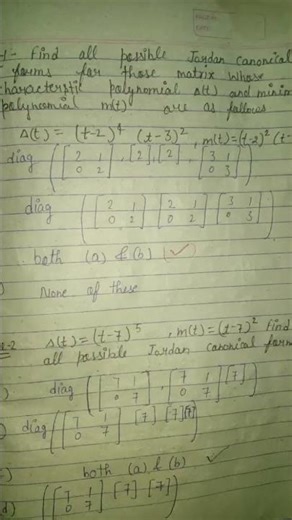 - Find all possible Jordan canonical
forms for those matrix whose
characterstic polynomial Δ(t) and minim
polynomial m(t) are as follows
Δ(t) = (t-2)^4 (t-3)^2 , m(t)=(t-2)^2 (t-
diag ([2 1 / 0 2], [2], [2], [3 1 / 0 3])
diag ([2 1 / 0 2] [2 1 / 0 2] [3 1 / 0 3])
both (a) & (b) ✓
None of these
-2 Δ(t) = (t-7)^5 , m(t) = (t-7)^2 Find
all possible Jordan canonical form
) diag ([7 1 / 0 7], [7 1 / 0 7] [7])
) diag ([7 1 / 0 7] [7] [7] [7])
) both (a) & (b) ✓
d) ([7 1 / 0 7] [7] [7])